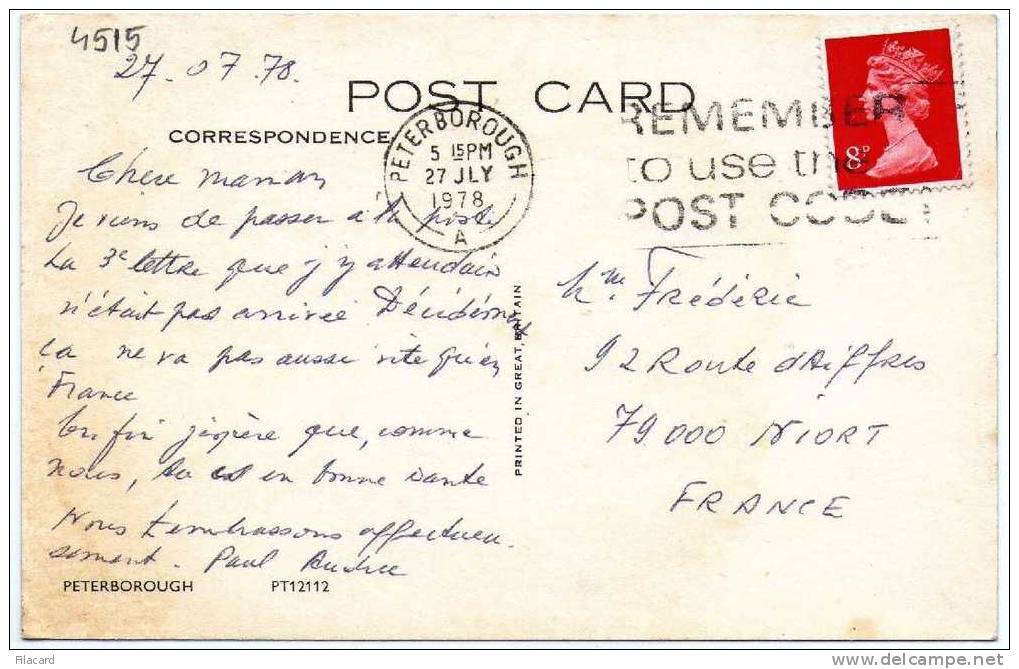 4515
27-07.78.
POST CARD
CORRESPONDENCE
PETERBOROUGH
5 15PM
27 JLY
1978
A
REMEMBER
to use the
POST CODE
8P
Chère maman
Je viens de passer à la poste
La 3e lettre que j'y attendais
n'était pas arrivée Décidément
ça ne va pas aussi vite qu'en
France
Enfin j'espère que, comme
nous, tu es en bonne santé
Nous t'embrassons affectueu-
sement. Paul Andrée
PETERBOROUGH PT12112
PRINTED IN GREAT BRITAIN
Mme. Frédéric
92 Route d'Aiffres
79000 NIORT
FRANCE
Filacard
www.delcampe.net